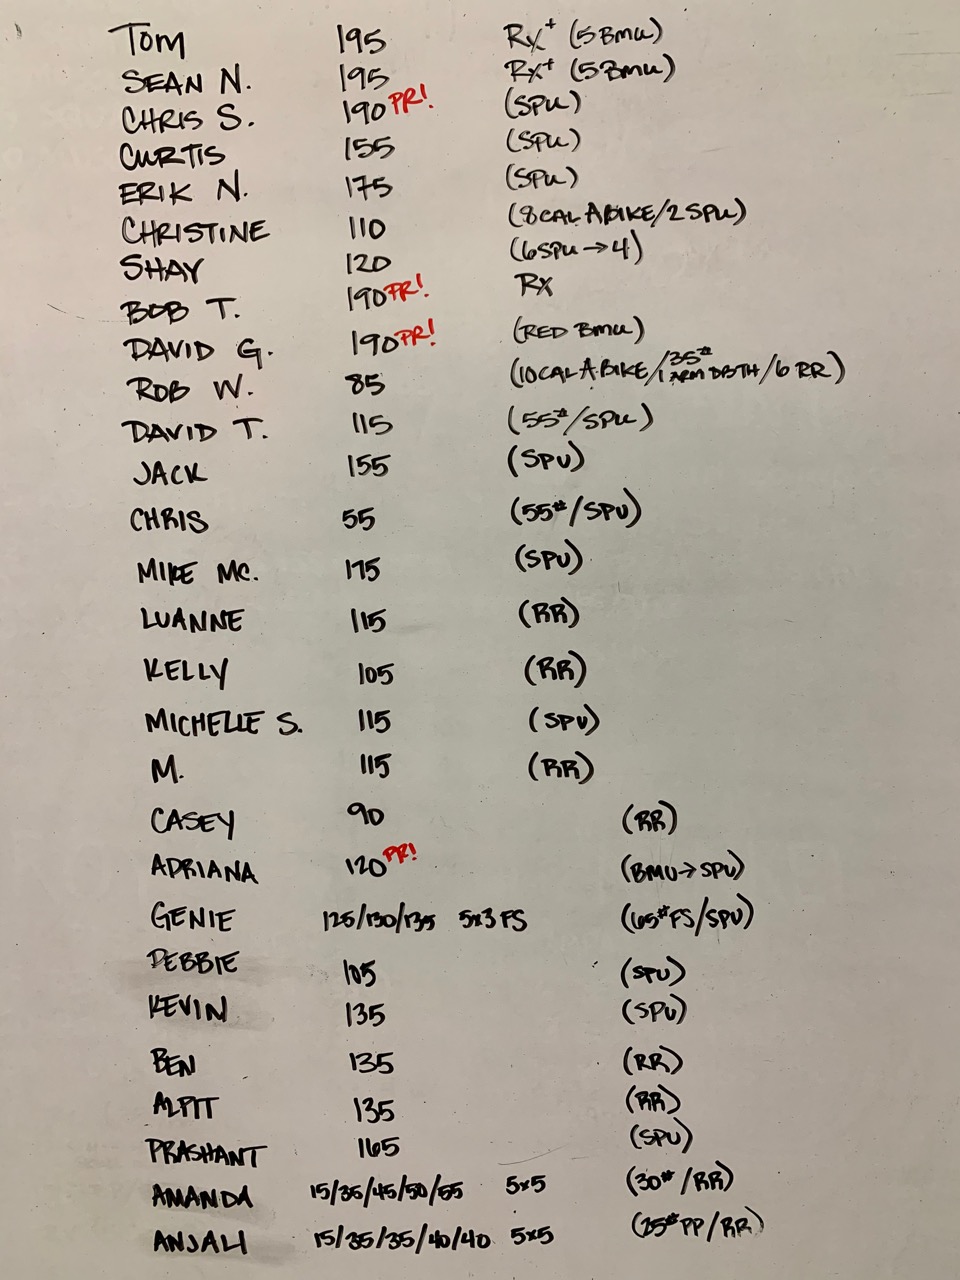 TOM 195 Rx+ (5 BMU)
SEAN N. 195 Rx+ (5 BMU)
CHRIS S. 190 PR! (SPU)
CURTIS 155 (SPU)
ERIK N. 175 (SPU)
CHRISTINE 110 (8CAL ABIKE/2 SPU)
SHAY 120 (6SPU→4)
BOB T. 190 PR! Rx
DAVID G. 190 PR! (RED BMU)
ROB W. 85 (10CAL ABIKE/35# 1 ARM DBTH/6 RR)
DAVID T. 115 (55#/SPU)
JACK 155 (SPU)
CHRIS 55 (55#/SPU)
MIKE MC. 175 (SPU)
LUANNE 115 (RR)
KELLY 105 (RR)
MICHELLE S. 115 (SPU)
M. 115 (RR)
CASEY 90 (RR)
ADRIANA 120 PR! (BMU→SPU)
GENIE 125/130/135 5x3 FS (65#FS/SPU)
DEBBIE 105 (SPU)
KEVIN 135 (SPU)
BEN 135 (RR)
ALPIT 135 (RR)
PRASHANT 165 (SPU)
AMANDA 15/35/45/50/55 5x5 (30#/RR)
ANJALI 15/35/35/40/40 5x5 (25#PP/RR)